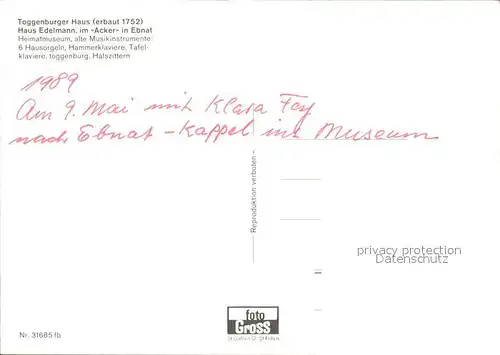 Toggenburger Haus (erbaut 1752)
Haus Edelmann, im «Acker» in Ebnat
Heimatmuseum, alte Musikinstrumente:
6 Hausorgeln, Hammerklaviere, Tafel-
klaviere, toggenburg. Halszittern
1989
Am 9. Mai mit Klara Fey
nach Ebnat-Kappel ins Museum
Reproduktion verboten
privacy protection
Datenschutz
foto
GROSS
St. Gallen
Nr. 31685 fb